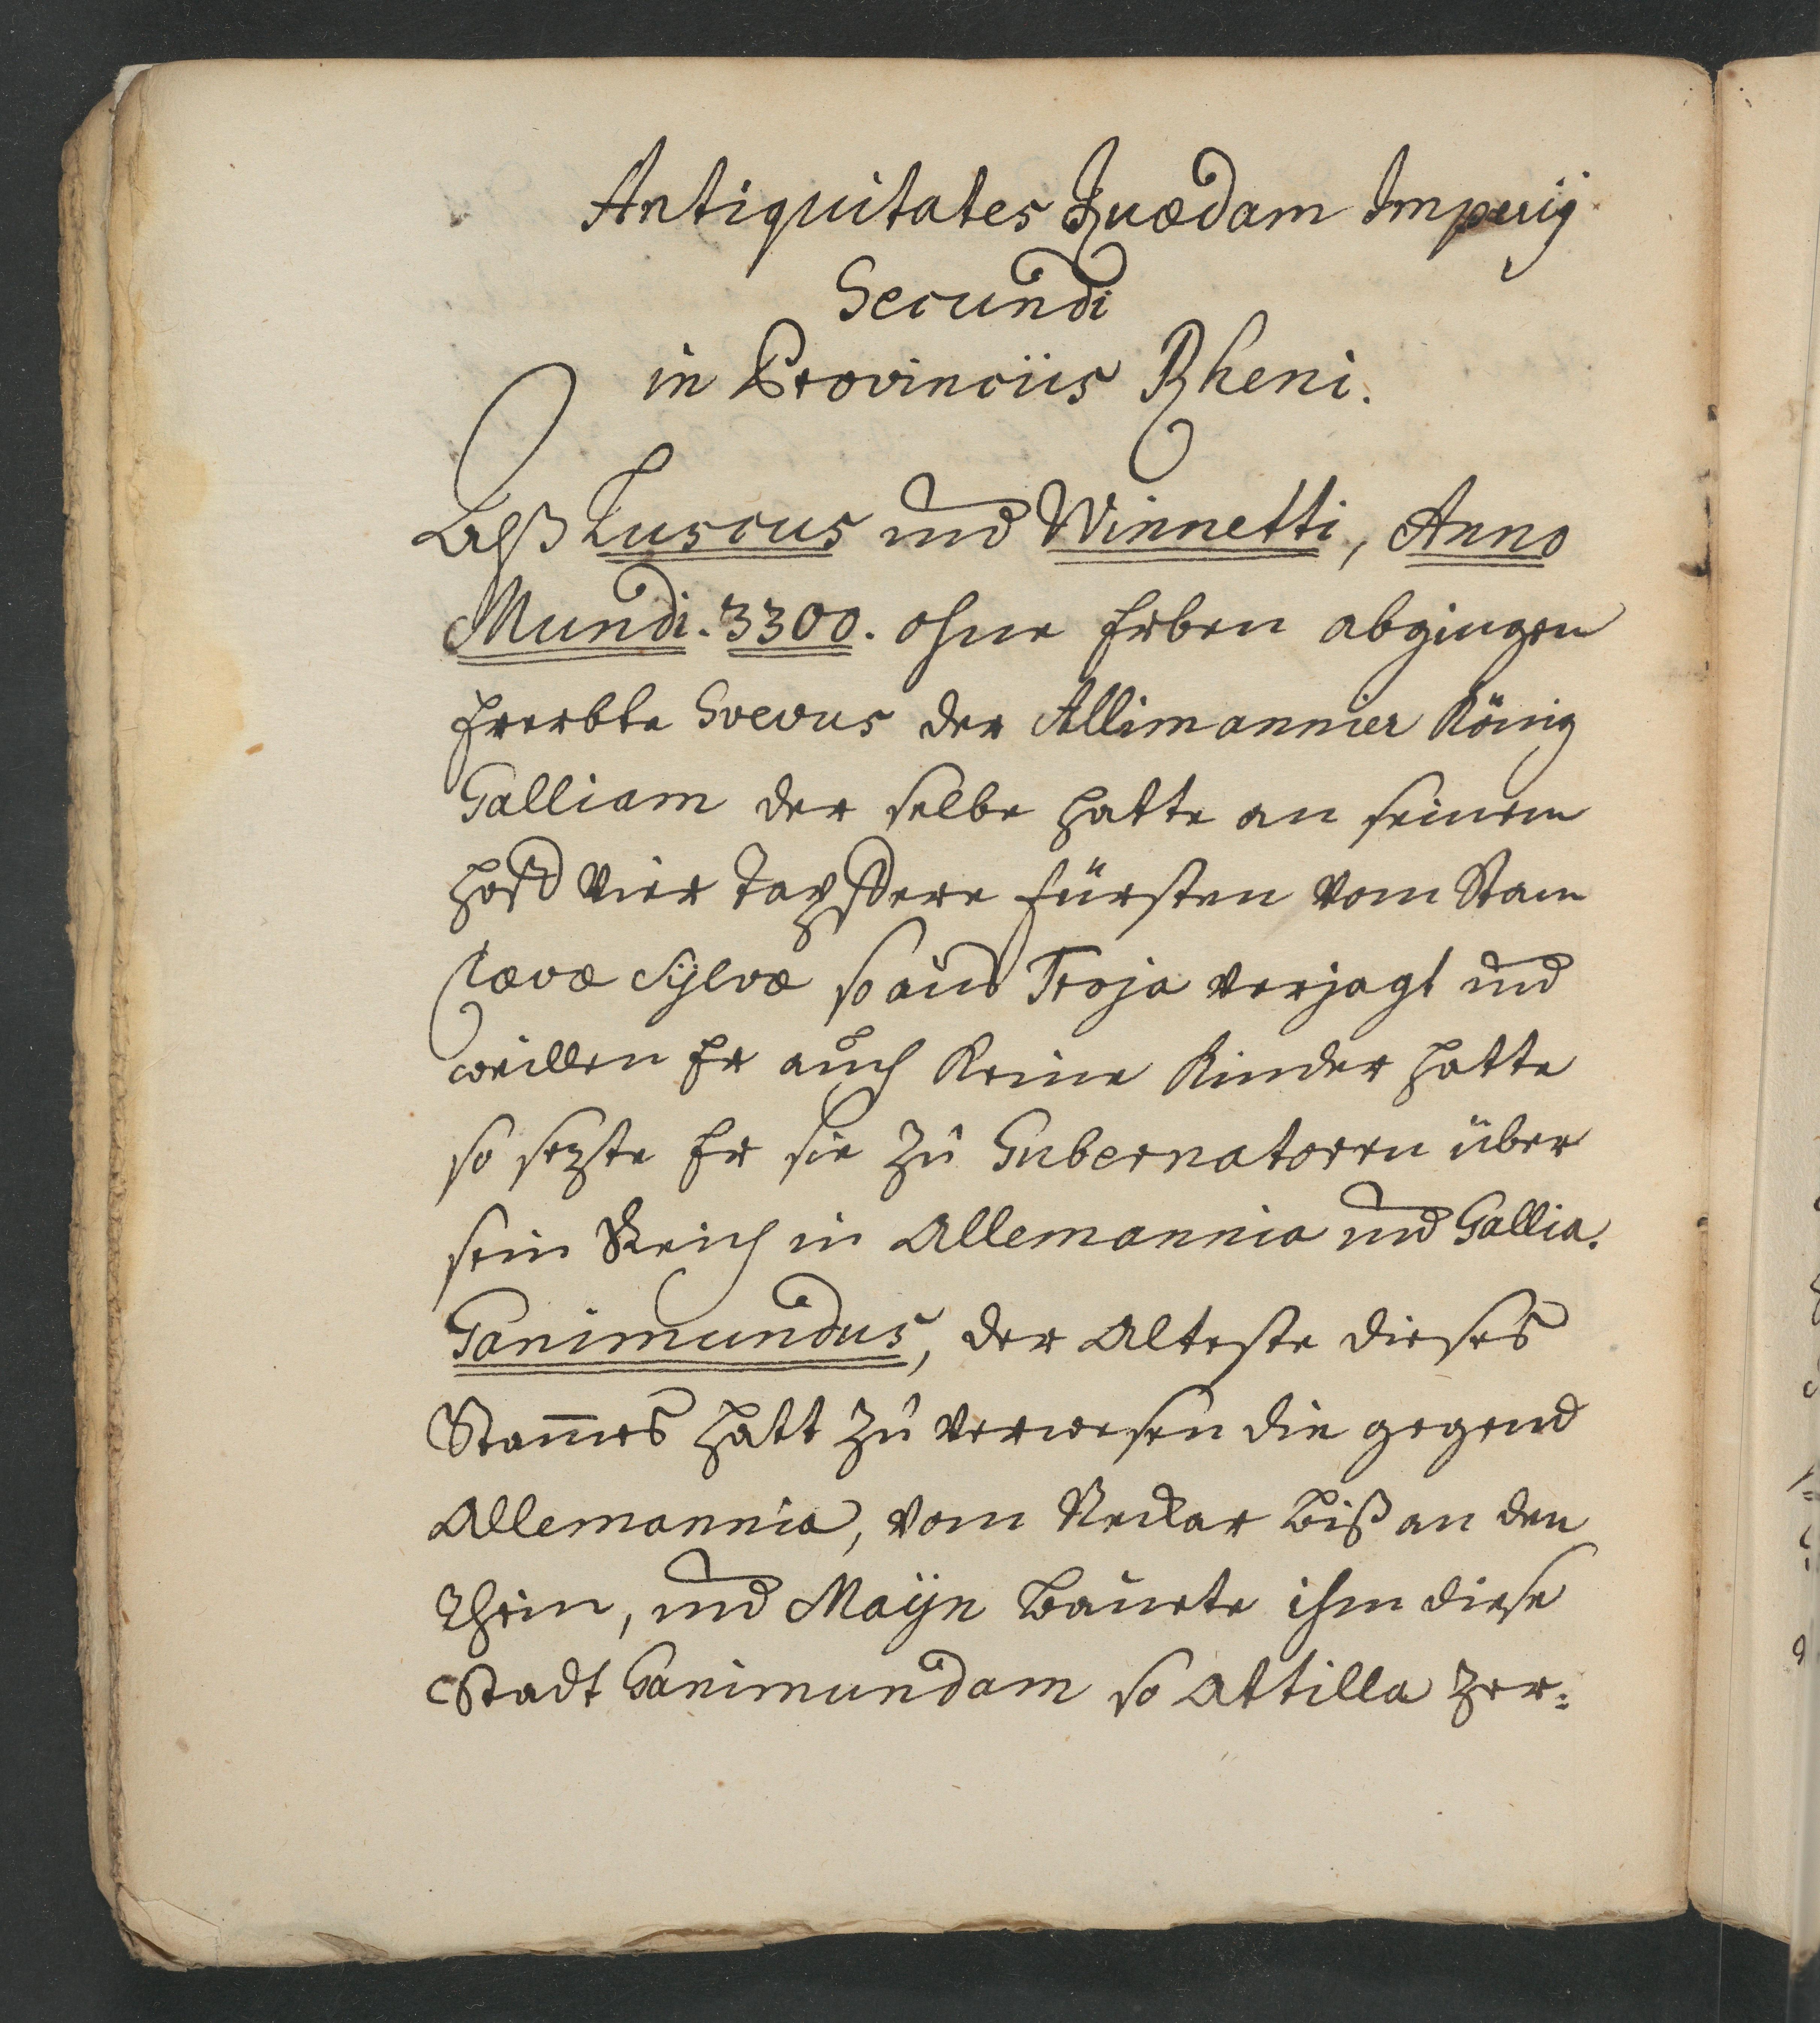 Antiquitates Quædam Imperij
Secundi
in Provinciis Rheni.
Alß Tuscus und Winnetti, Anno
Mundi. 3300. ohne Erben abgingen
Ererbte Svevus der Allimannier König
Galliam der selbe hatte an seinem
Hoff vier tapffere fürsten vom Stam
sævæ Sylvæ so aus Troja verjagt und
weillen Er auch keine Kinder hatte
so sezte Er sie zu Gubernatoren über
sein Reich in Allemannia und Gallia.
Ganimundus, der Alteste dieses
Stam̅es hatt zu verwesen die gegend
Allemannia, vom Neckar biß an den
Rhein, und Maÿn bauete ihm diese
Stadt Ganimundam so Attilla zer=